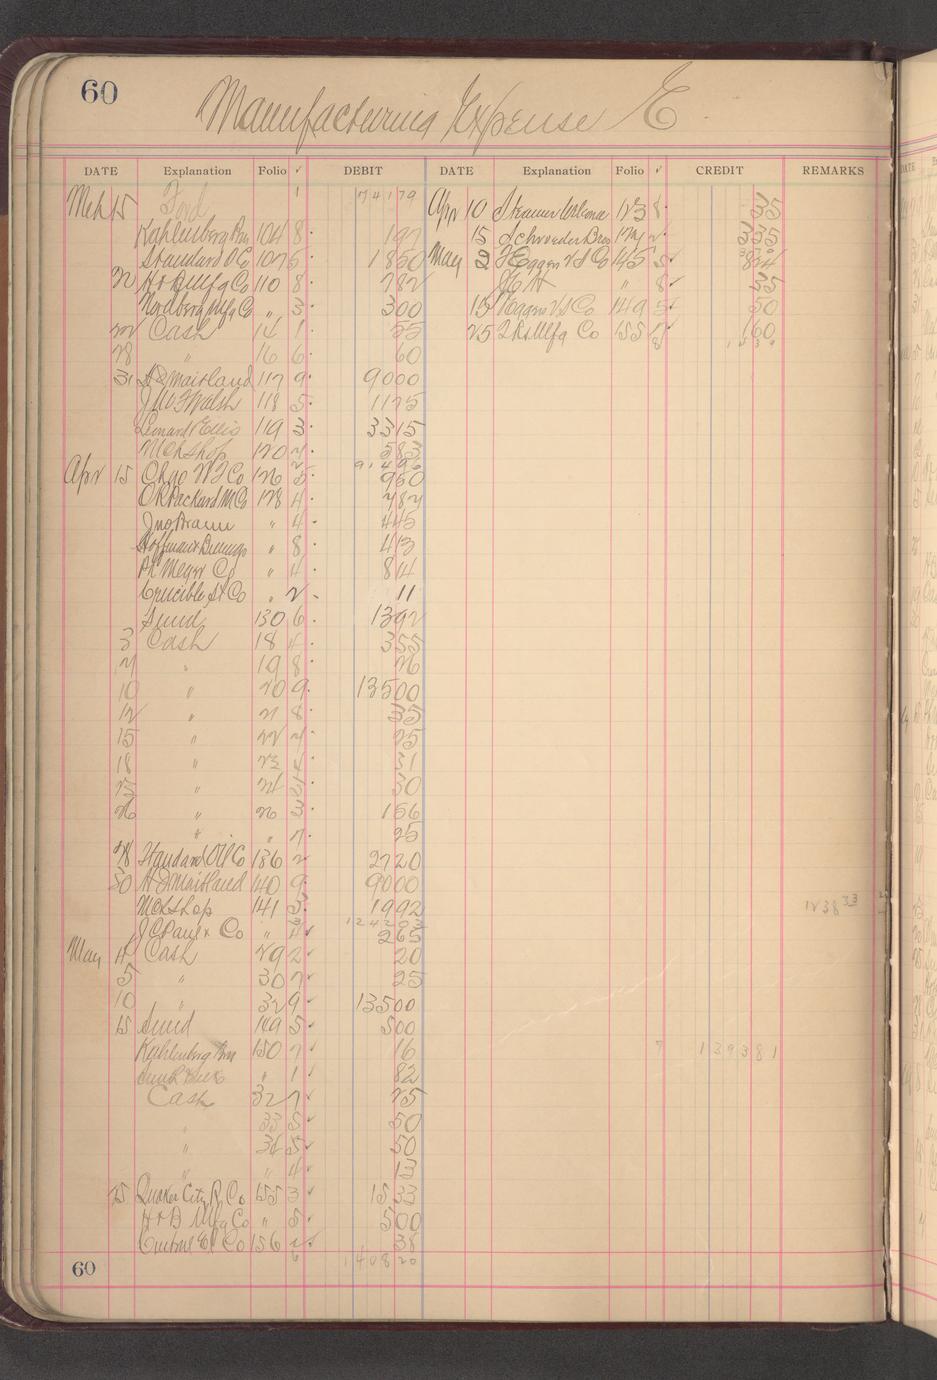 60
Manufacturing Expense E
DATE Explanation Folio ✓ DEBIT DATE Explanation Folio ✓ CREDIT REMARKS
Mch 15 Ford 1 741 79 Apr 10 Steamer 123 8 35
Kahlenberg Bros 104 8 197 15 Schroeder Bros 2 335
Standard O Co 107 5 1850 May 2 Eggers V S Co 145 5 ✓
H & B Mfg Co 110 8 782 " 8 ✓ 35
Nordberg Mfg Co " 3 300 15 Eggers V S Co 149 5 ✓ 50
22 Cash 14 1 55 25 Mfg Co 155 1 ✓ 160
28 " 16 6 60 8
31 A D Maitland 117 9 9000
J Mc F Walsh 118 5 1175
Leonard Ellis 119 3 3315
Mch Shop 120 583
Apr 15 Chgo Co 126 5 950
O R Packard M Co 128 4
Jno Braun " 4 445
Hoffman & Billings " 8 413
Ph Co " 4 814
Crucible St Co " 2 11
Sund 130 6 1392
3 Cash 18 4 355
" 19 8 26
10 " 20 9 13500
12 " 21 8 35
15 " 22 25
18 " 23 4 31
" 24 30
26 " 26 3 156
" " 7 25
28 Standard Oil Co 136 2 2720
30 A D Maitland 140 9 9000
Mch Shop 141 3 1992 1238 33
J C Paul & Co " 4 ✓ 265
May 4 Cash 29 2 ✓ 20
5 " 30 7 ✓ 25
10 " 32 9 ✓ 13500
15 Sund 149 5 ✓ 500
Kahlenberg Bros 150 7 ✓ 16 7 1393 81
" 1 ✓ 82
Cash 32 7 ✓ 25
" 33 5 ✓ 50
" 34 5 ✓ 50
" " 4 ✓ 13
25 Quaker City R Co 155 3 ✓ 1533
H & B Mfg Co " 5 500
Central El Co 156 2 38
60 6 1408 20